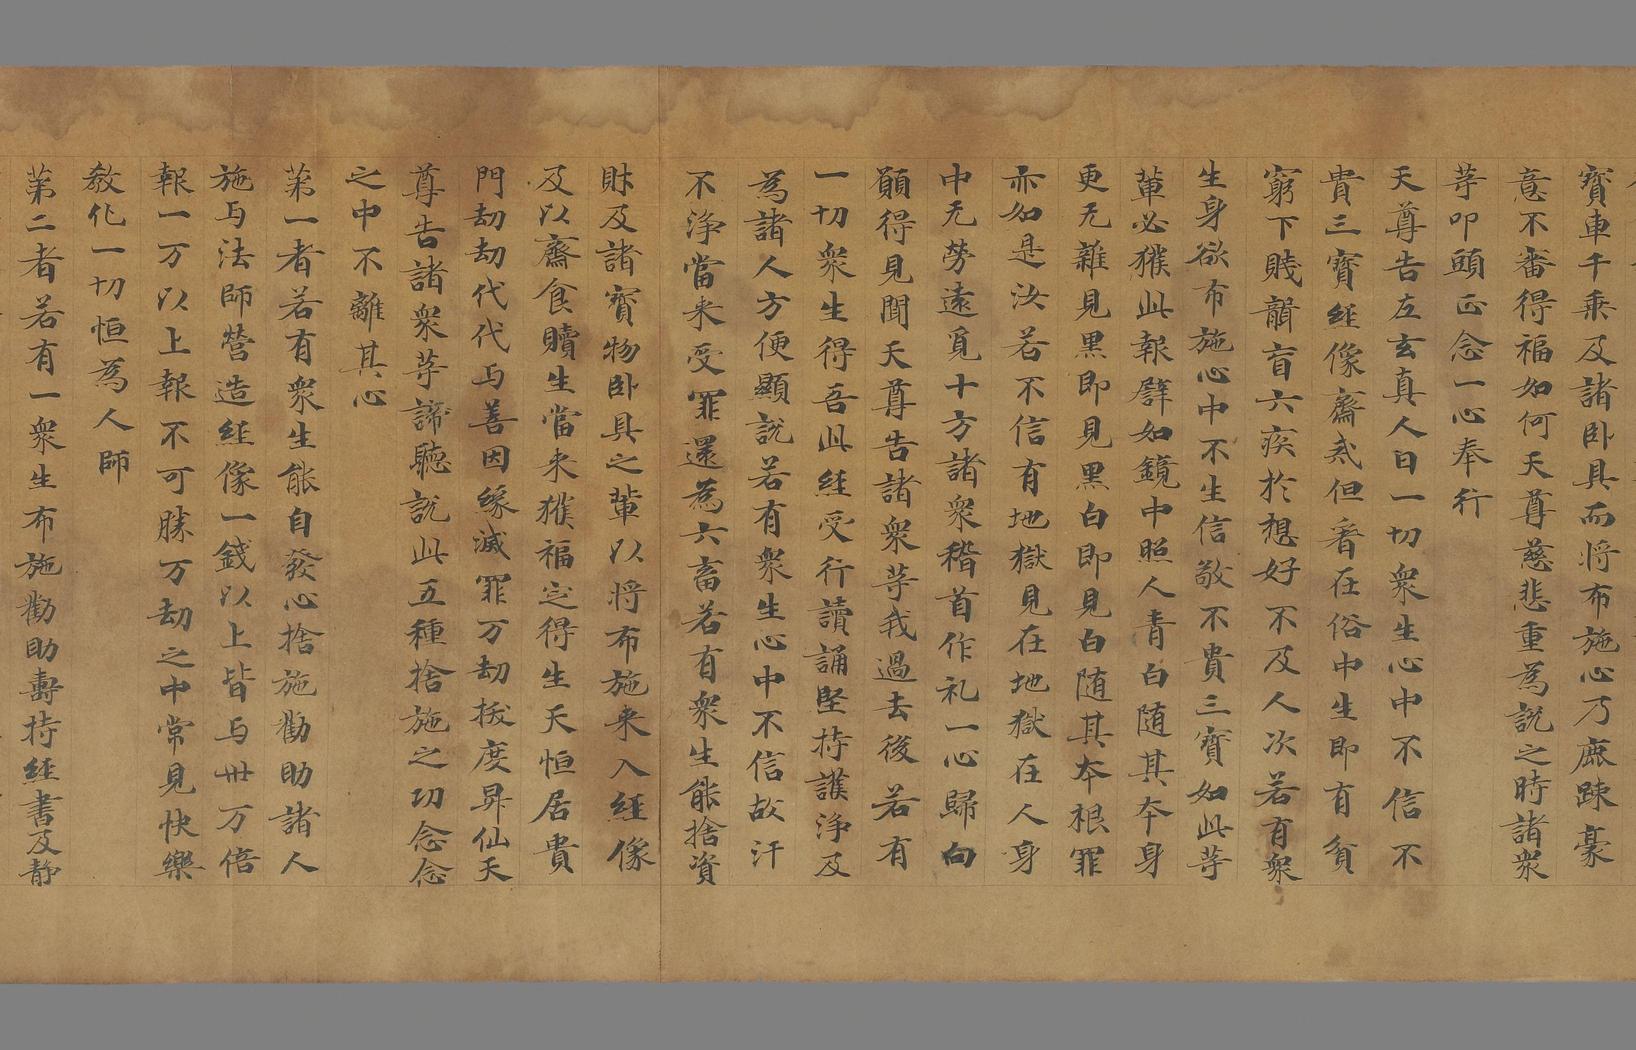 寶車千乘及諸卧具而將布施心乃麁踈豪
意不審得福如何天尊慈悲重為說之時諸衆
䓁叩頭正念一心奉行
天尊告左玄真人曰一切衆生心中不信不
貴三寶經像齋戒但看在俗中生即有貧
窮下賤聾盲六疾於想好不及人次若有衆
生身欲布施心中不生信敬不貴三寶如此䓁
輩必獲此報譬如鏡中照人青白随其本身
更无雜見黒即見黒白即見白随其本根罪
亦如是汝若不信有地獄見在地獄在人身
中无勞遠覓十方諸衆稽首作礼一心歸向
願得見聞天尊告諸衆䓁我過去後若有
一切衆生得吾此經受行讀誦堅持護淨及
為諸人方便顯說若有衆生心中不信故汙
不淨當来受罪還為六畜若有衆生能捨資
財及諸寶物卧具之輩以將布施来入經像
及以齋食贖生當来獲福定得生天恒居貴
門劫劫代代与善因緣滅罪万劫拔度昇仙天
尊告諸衆䓁諦聽說此五種捨施之功念念
之中不離其心
苐一者若有衆生能自發心捨施勸助諸人
施与法師營造經像一錢以上皆与卌万倍
報一万以上報不可勝万劫之中常見快樂
教化一切恒為人師
苐二者若有一衆生布施勸助壽持經書及静